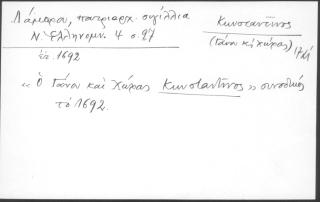 Λάμπρου, πατριαρχ. σιγίλλια
Ν. Ἑλληνομν. 4 σ. 97
ἐν 1692
Κωνσταντῖνος
(Γάνου καὶ Χώρας)
« Ὁ Γάνου καὶ Χώρας Κωνσταντῖνος » συνοδικῶς
τὸ 1692.